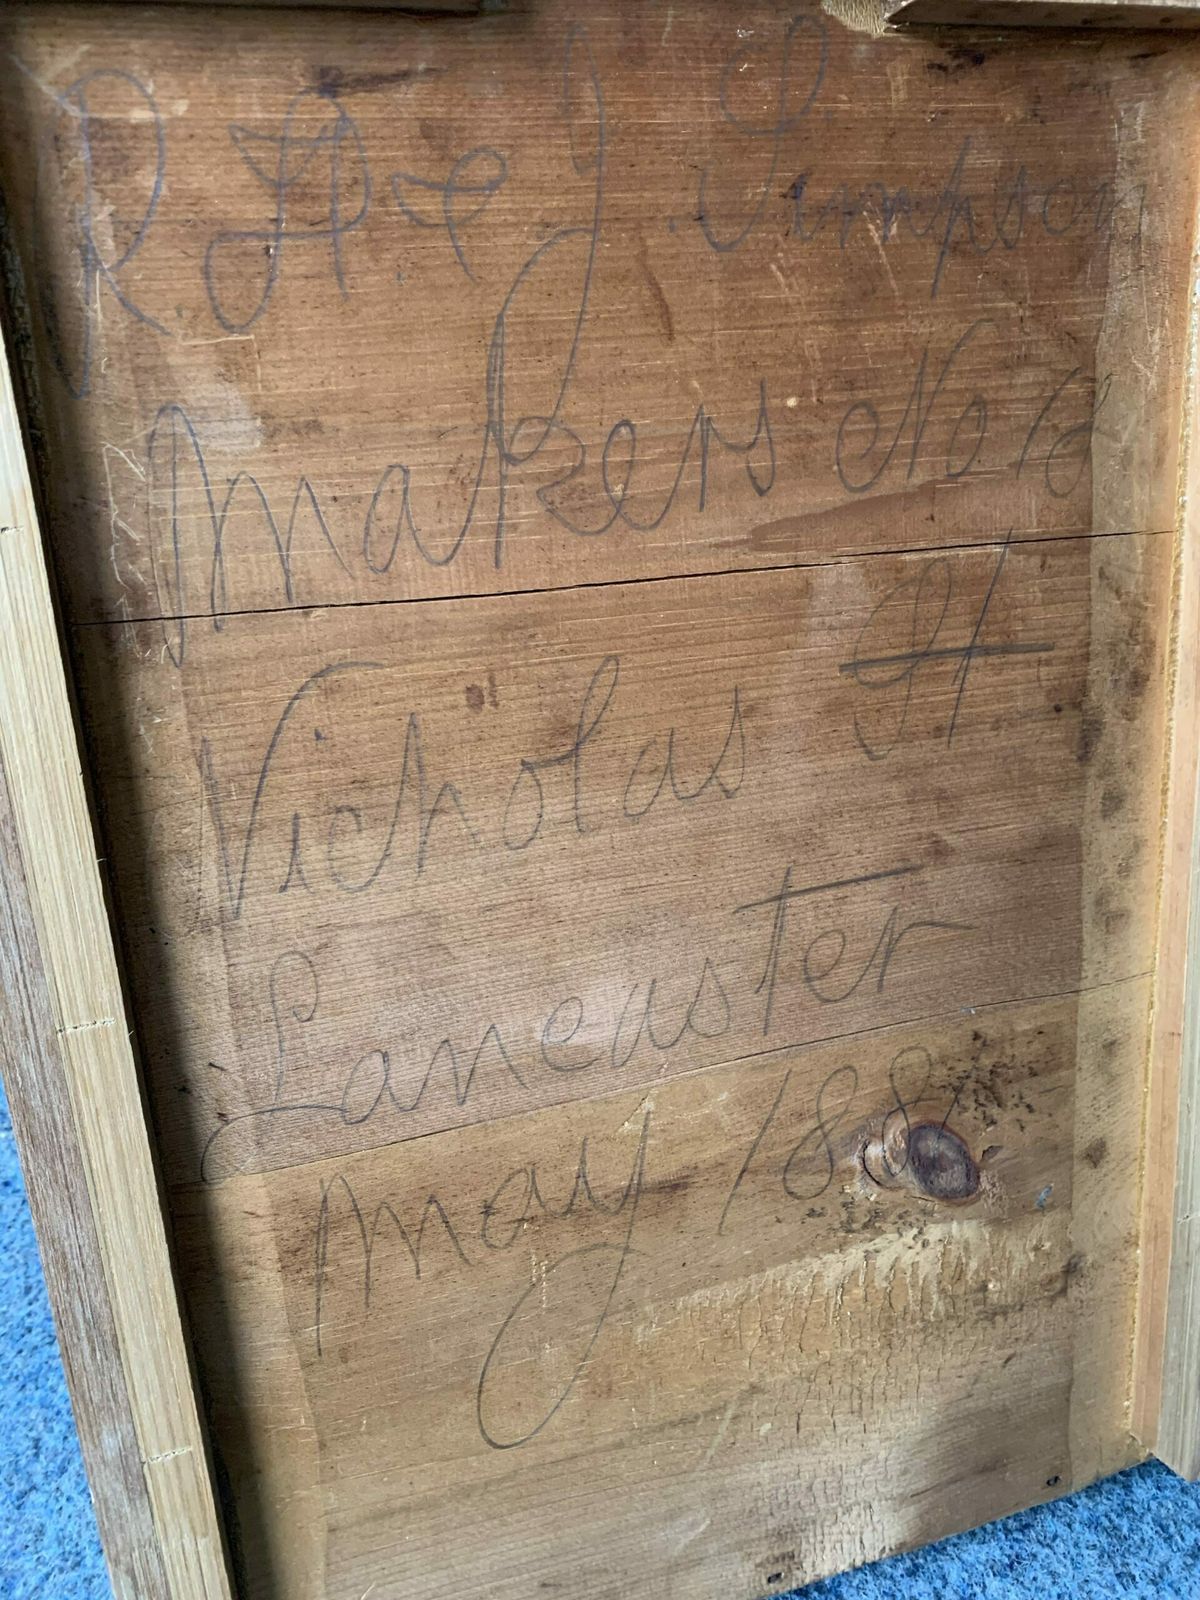 R. A & J. Simpson
Makers No 18
Nicholas St
Lancaster
May 1881